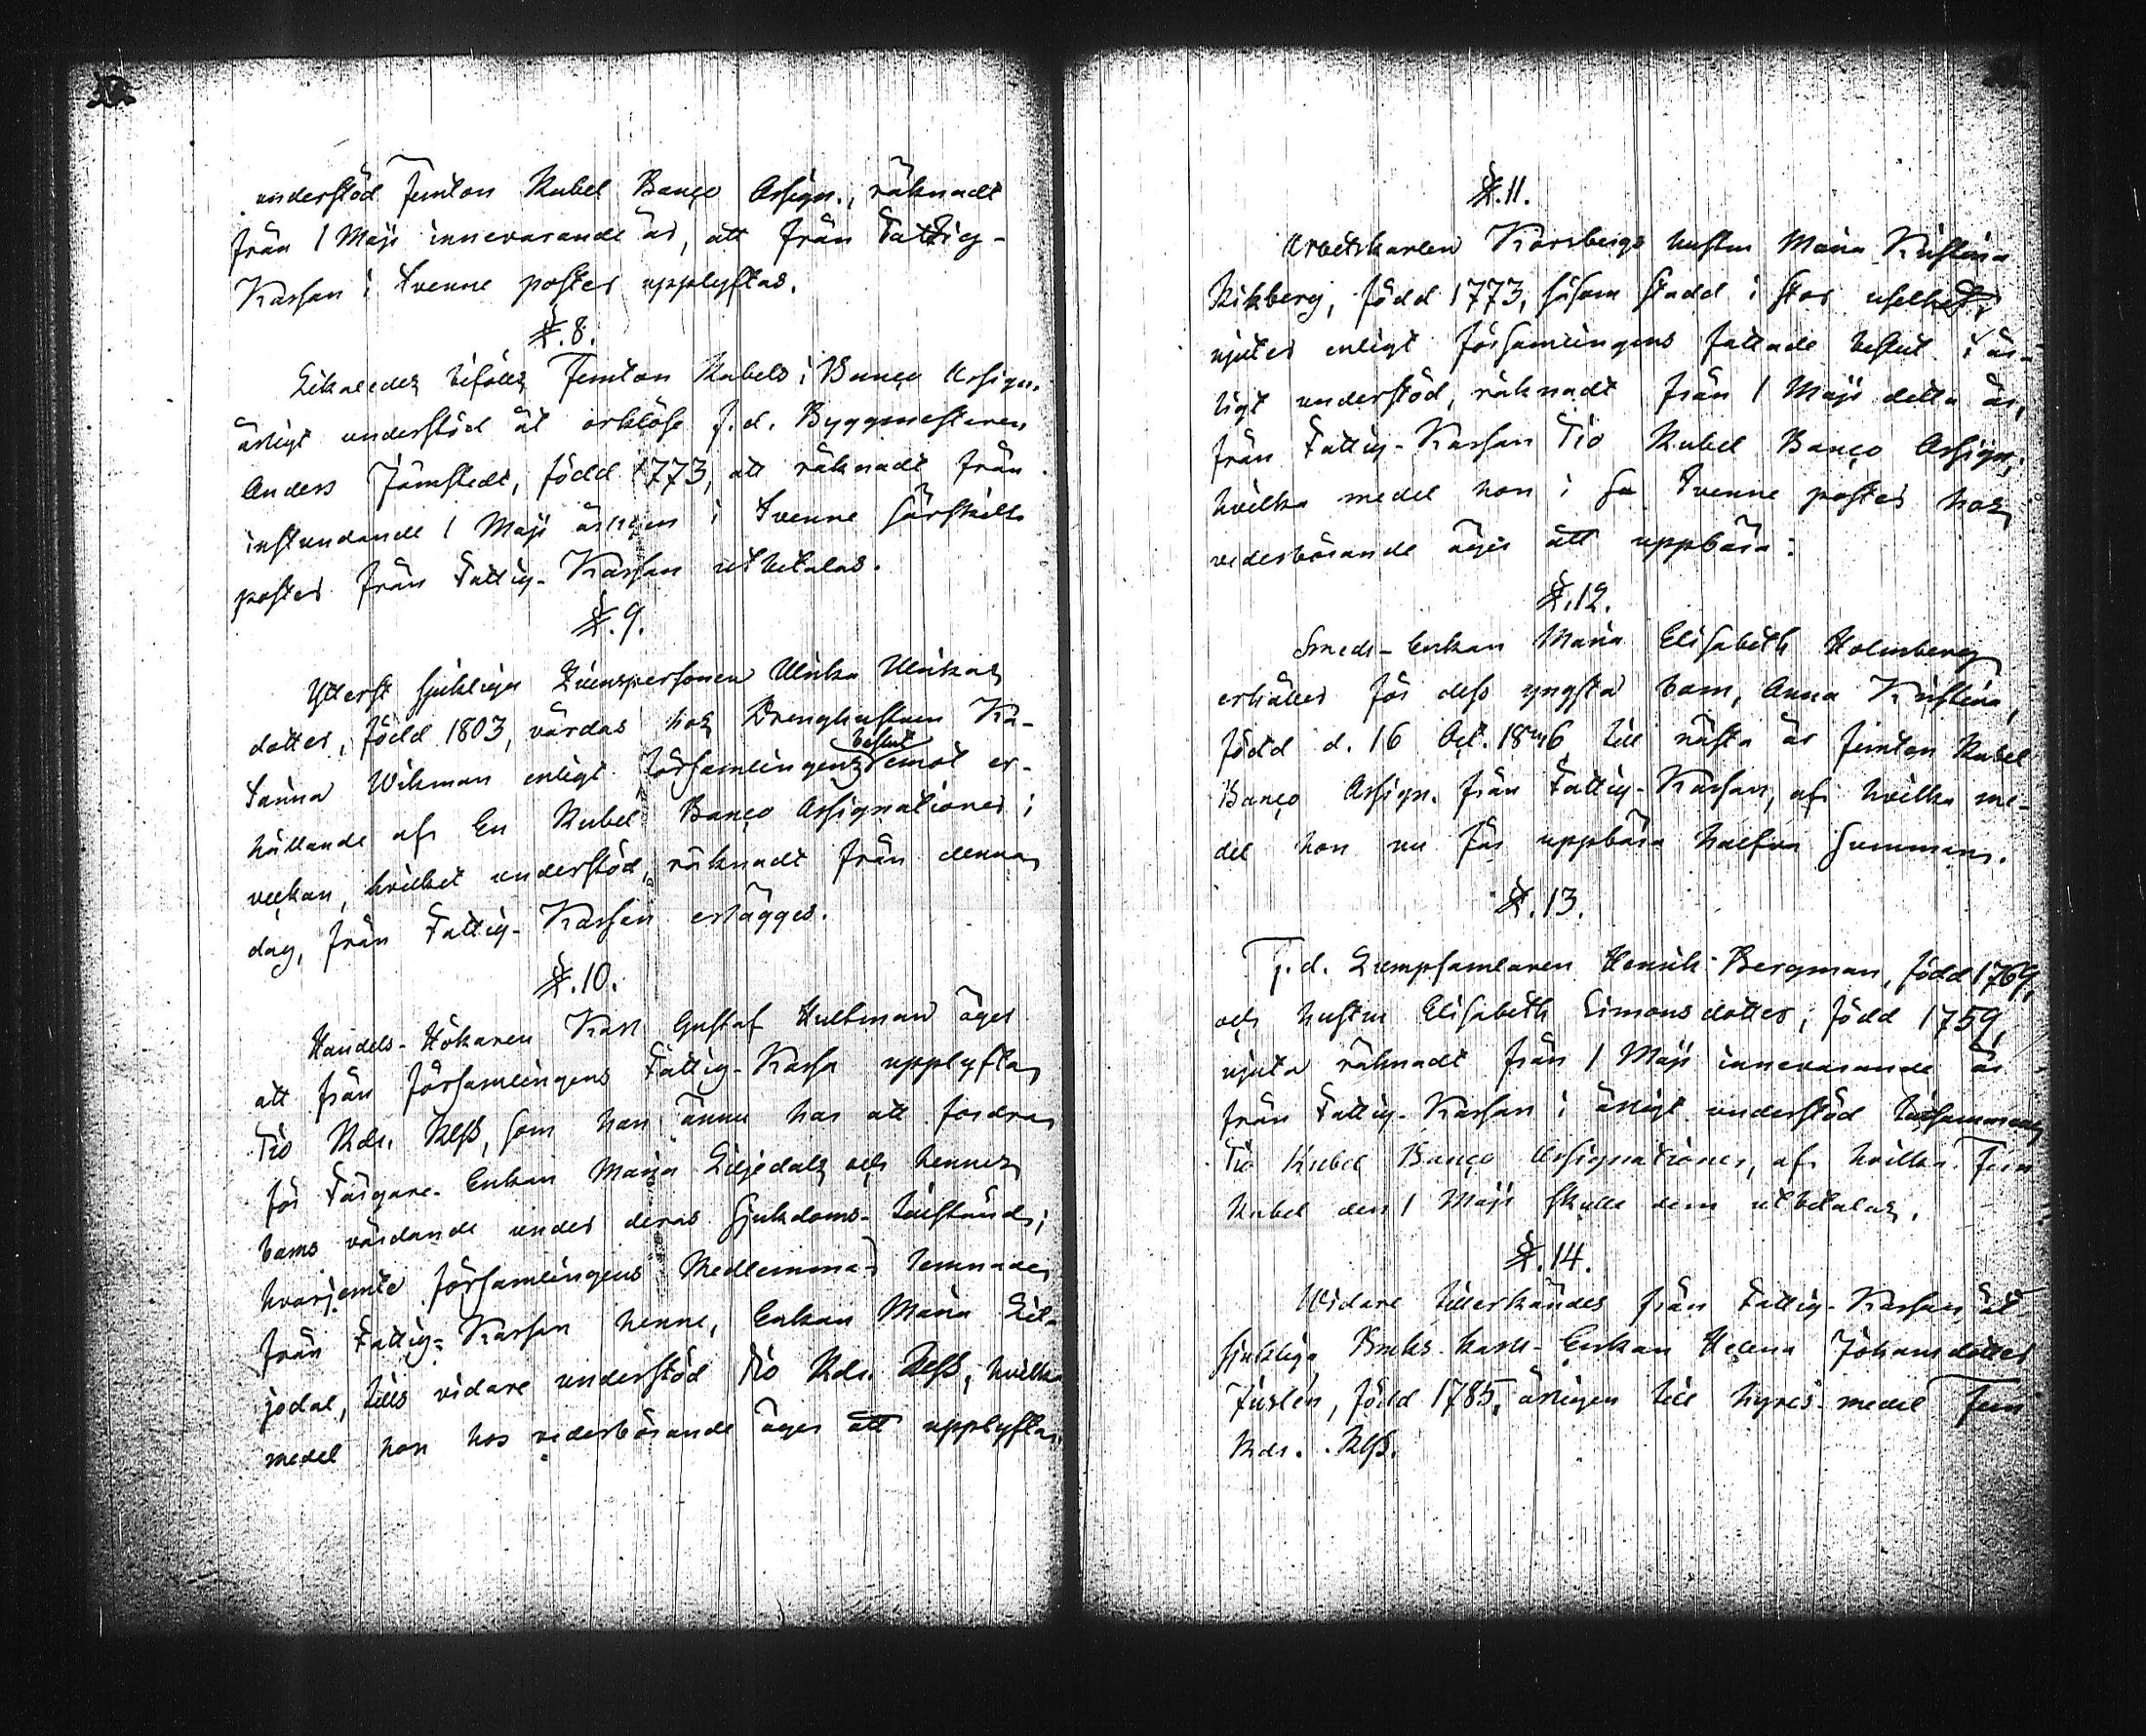 understöd Femton Rubel Banco Assign., räknadt
från 1 Maji innevarande år, att från Fattig-
Kassan i tvenne poster upplyftas.
§. 8.
Likaledes bifölls Femton Rubels i Banco Assign.
årligt understöd åt orklöse f. d. Byggmestaren
Anders Jämstedt, född 1773, att räknadt från
instundande 1 Maji årligen i tvenne särskilta
poster från Fattig-Kassan utbetalas.
§. 9.
Ytterst sjukliga Qvinspersonen Ulrika Ulrikas
dotter, född 1803, vårdas hos Drenghustrun Ka-
tarina Wikman enligt Församlingens beslut emot er-
hållande af En Rubel Banco Assignationer i
veckan, hvilket understöd, räknadt från denna
dag, från Fattig-Kassan erlägges.
§. 10.
Handels-Hökaren Karl Gustaf Hultman äger
att från församlingens Fattig-Kassa upplyfta
Tio Rdr. RgsS, som han ännu har att fordra
för Färgare-Enkan Maria Liljedals och hennes
barns vårdande under deras sjukdoms-tillstånd;
hvarjemte församlingens Medlemmar lemnade
från Fattig-Kassan henne, Enkan Maria Lil-
jedal, tills vidare understöd Tio Rdr. RgsS, hvilka
medel hon hos vederbörande äger att upplyfta.
§. 11.
Arbetskarlen Korsbergs hustru Maria Kristina
Rikberg, född 1773, såsom stadd i stor uselhet,
njuter enligt församlingens fattade beslut i år-
ligt understöd, räknadt från 1 Maji detta år,
från Fattig-Kassan Tio Rubel Banco Assign;
hvilka medel hon i tvenne poster hos
vederbörande äger att uppbära.
§. 12.
Smeds-Enkan Maria Elisabeth Holmberg
erhåller för dess yngsta barn, Anna Kristina,
född d. 16 Oct. 1846 till nästa år femton Rubel
Banco Assign. från Fattig-Kassan, af hvilka me-
del hon nu får uppbära halfva summan.
§. 13.
F. d. Lumpsamlaren Henrik Bergman, född 1769,
och hustru Elisabeth Simonsdotter, född 1759,
njuta räknadt från 1 Maji innevarande år
från Fattig-Kassan i årligt understöd tillsammans
Tio Rubel Banco Assignationer, af hvilka Fem
Rubel den 1 Maji skulle dem utbetalas.
§. 14.
Widare tillerkändes från Fattig-Kassan, åt
sjukliga Bruks-karls-Enkan Helena Johansdotter
Juslén, född 1785, årligen till hyres-medel Fem
Rdr. RgsS.